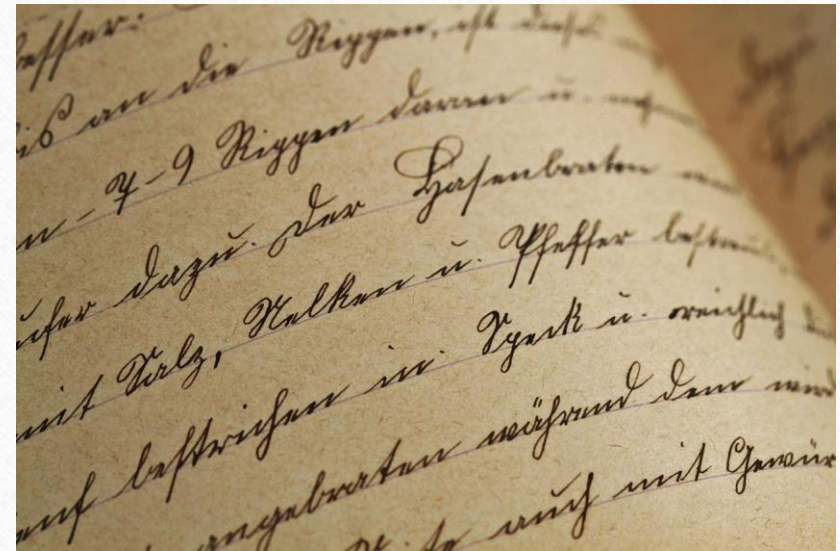 besser.
bis an die Rippen, ist dieses
n - 7 - 9 Rippen daran u.
dazu. Der Hasenbraten
mit Salz, Nelken u. Pfeffer bestreut,
enf bestrichen in Speck u. reichlich
angebraten während dem wird
auch mit Gewür